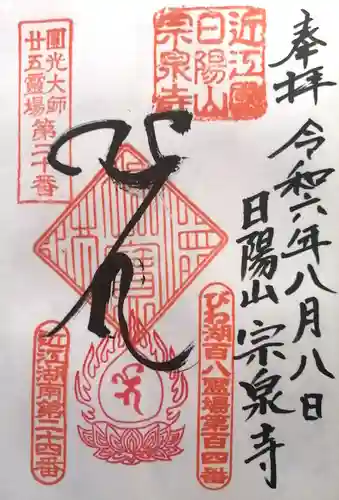 奉拝
令和六年八月八日
日陽山 宗泉寺
近江國
日陽山
宗泉寺
圓光大師
廿五霊場第二十番
びわ湖百八霊場第百四番
近江湖南第二十四番